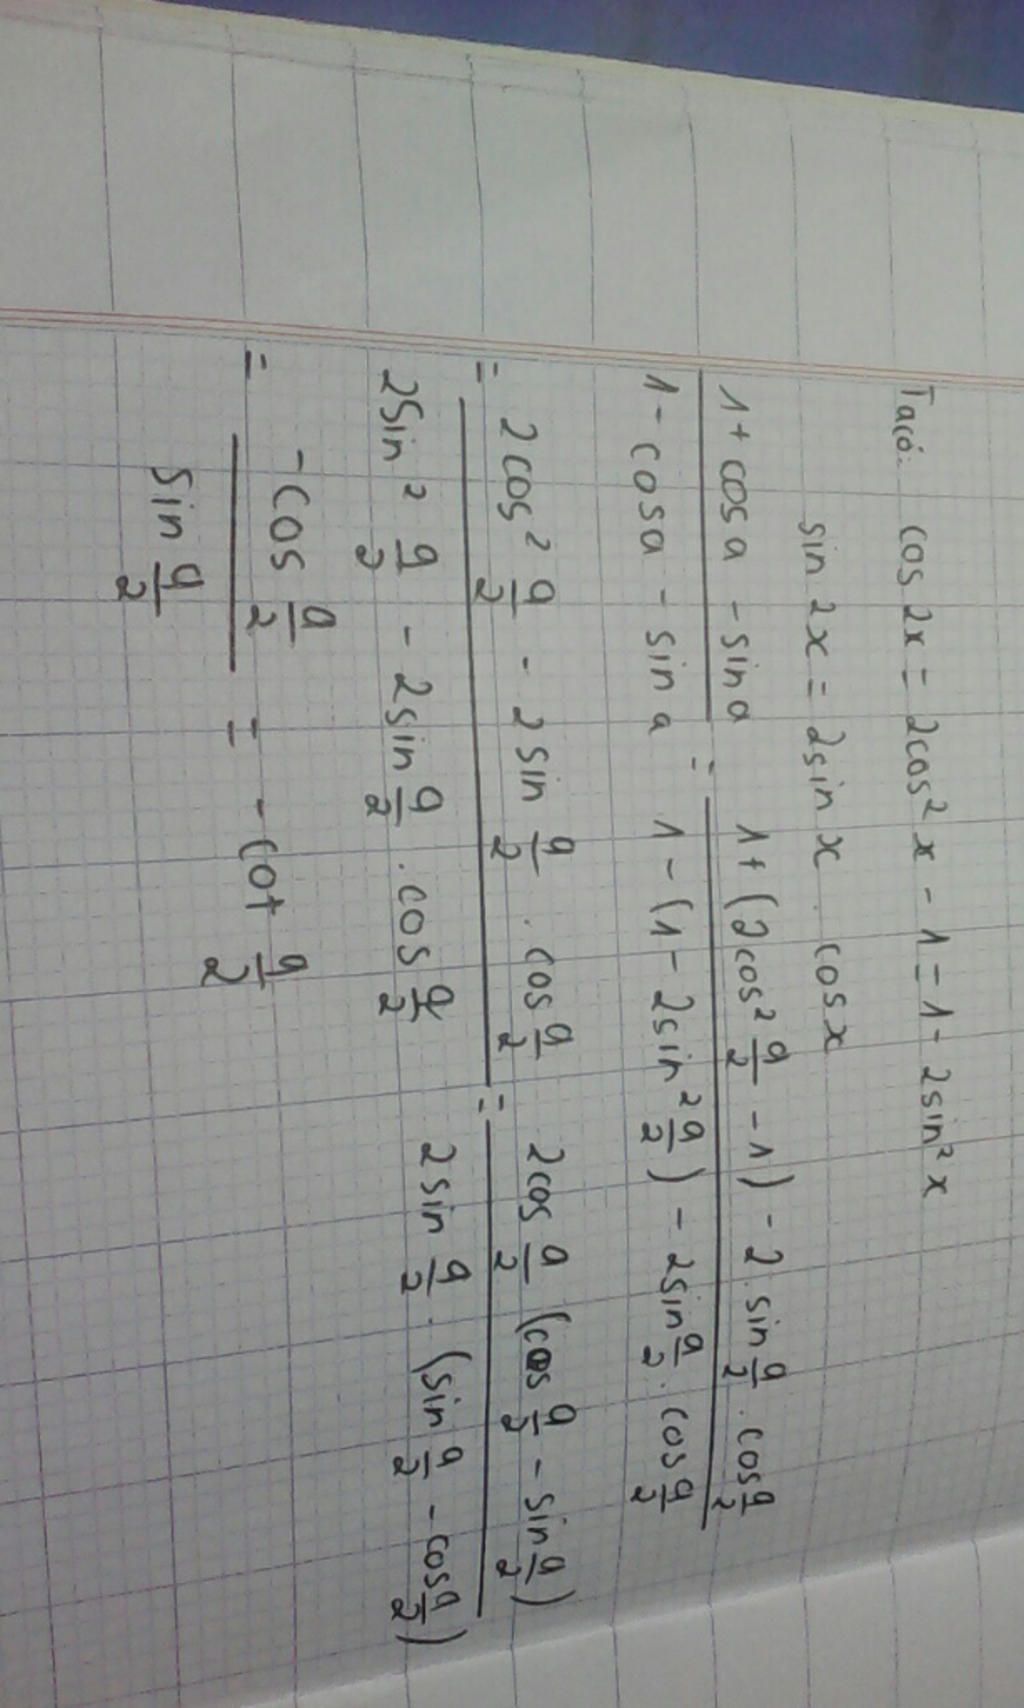 Ta có: cos 2x = 2cos² x - 1 = 1 - 2sin² x
sin 2x = 2sin x . cos x
(1 + cos a - sin a)/(1 - cos a - sin a) = (1 + (2cos² a/2 - 1) - 2.sin a/2 . cos a/2)/(1 - (1 - 2sin² a/2) - 2sin a/2 . cos a/2)
= (2cos² a/2 - 2sin a/2 . cos a/2)/(2sin² a/2 - 2sin a/2 . cos a/2) = (2cos a/2 (cos a/2 - sin a/2))/(2sin a/2 . (sin a/2 - cos a/2))
= (-cos a/2)/(sin a/2) = -cot a/2